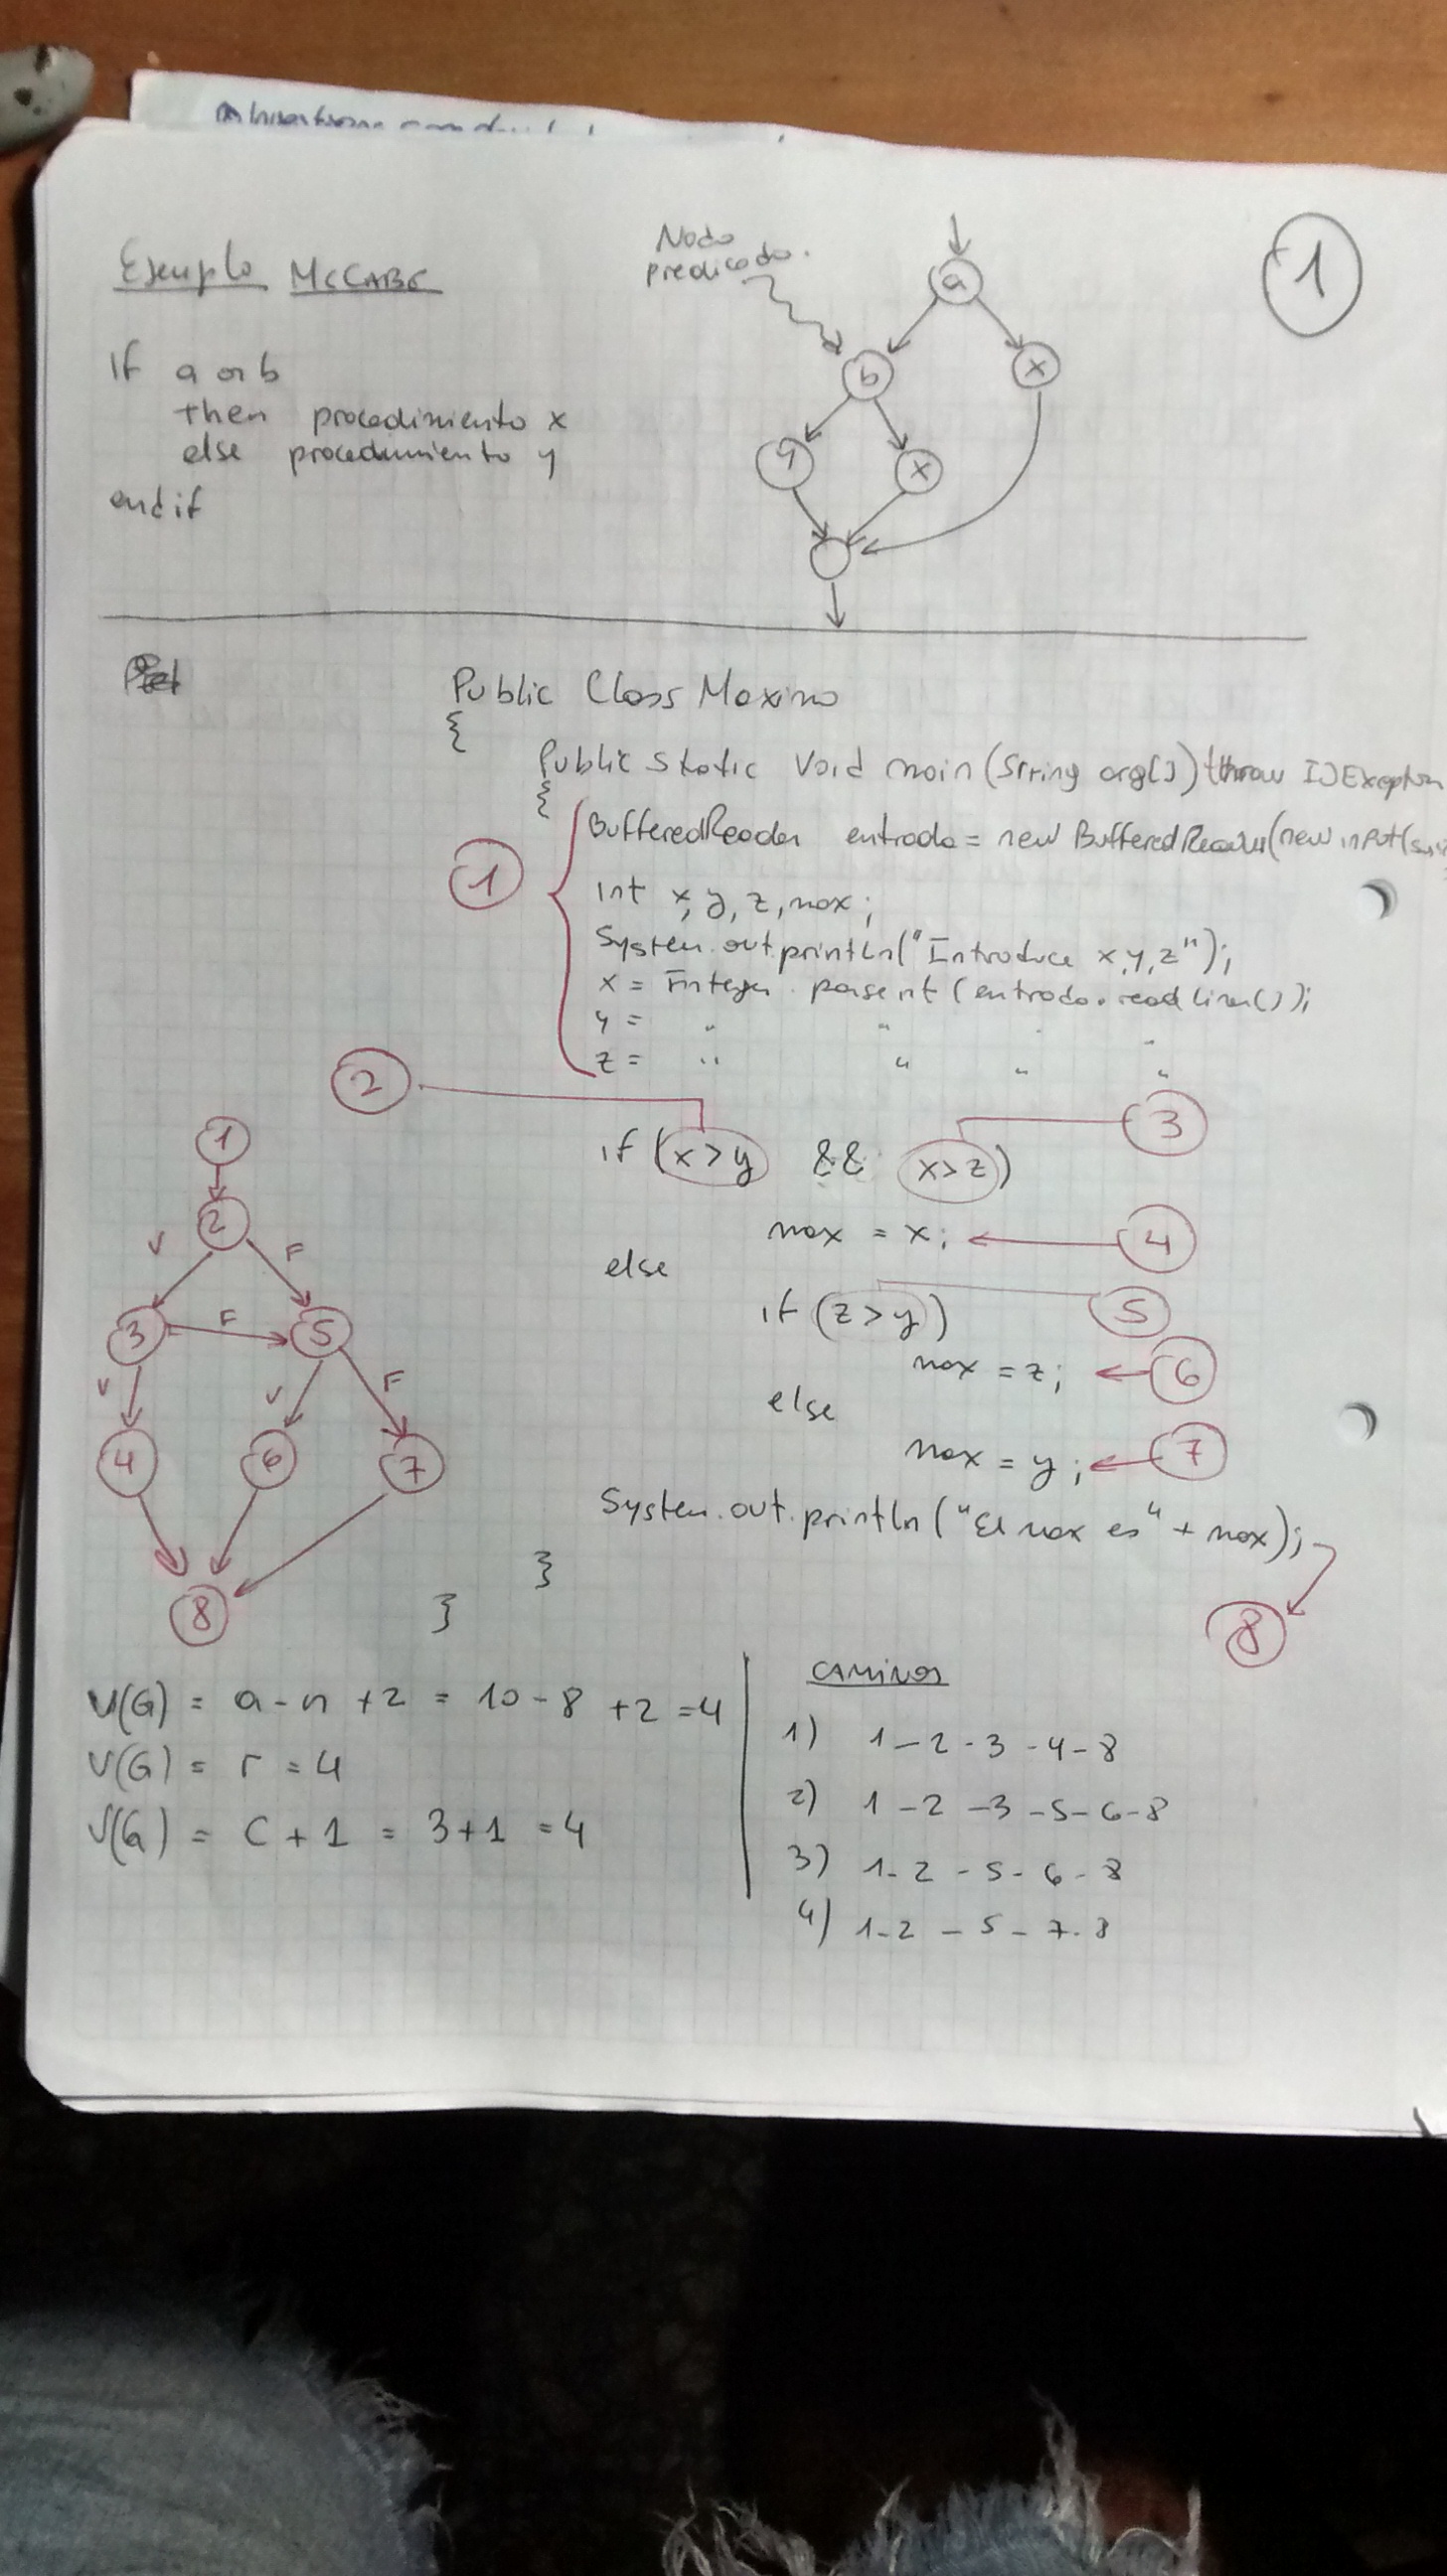 Ejemplo McCABE
1
Nodo
predicado.
a
b
x
y
x
If a or b
then procedimiento x
else procedimiento y
endif
Public Class Maximo
{
Public Static Void main (String arg[]) throw IOException
{
1
BufferedReader entrada = new BufferedReader(new input(
int x, y, z, max;
System.out.println("Introduce x,y,z");
x = Integer.parseint (entrada.readline());
y = " " " "
z = " " " "
2
3
if (x>y && x>z)
max = x;
4
else
if (z>y)
5
max = z;
6
else
max = y;
7
System.out.println ("El max es" + max);
8
}
}
1
2
V F
3 F 5
V V F
4 6 7
8
V(G) = a - n + 2 = 10 - 8 + 2 = 4
V(G) = r = 4
V(G) = C + 1 = 3+1 = 4
CAMINOS
1) 1-2-3-4-8
2) 1-2-3-5-6-8
3) 1-2-5-6-8
4) 1-2-5-7-8